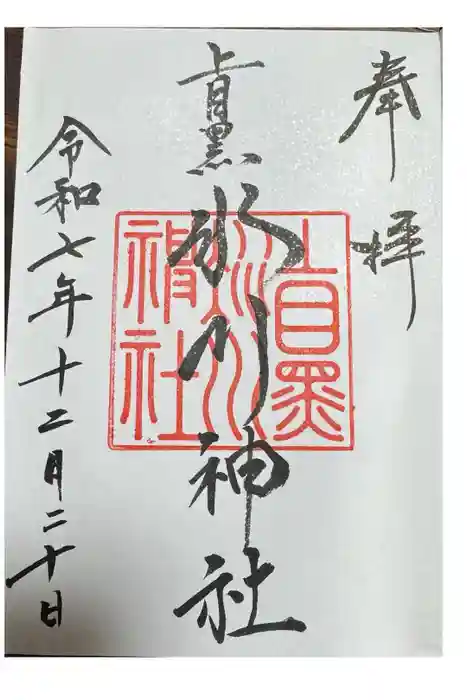 奉拝
上目黒氷川神社
上目黒氷川神社
令和七年十二月二十日